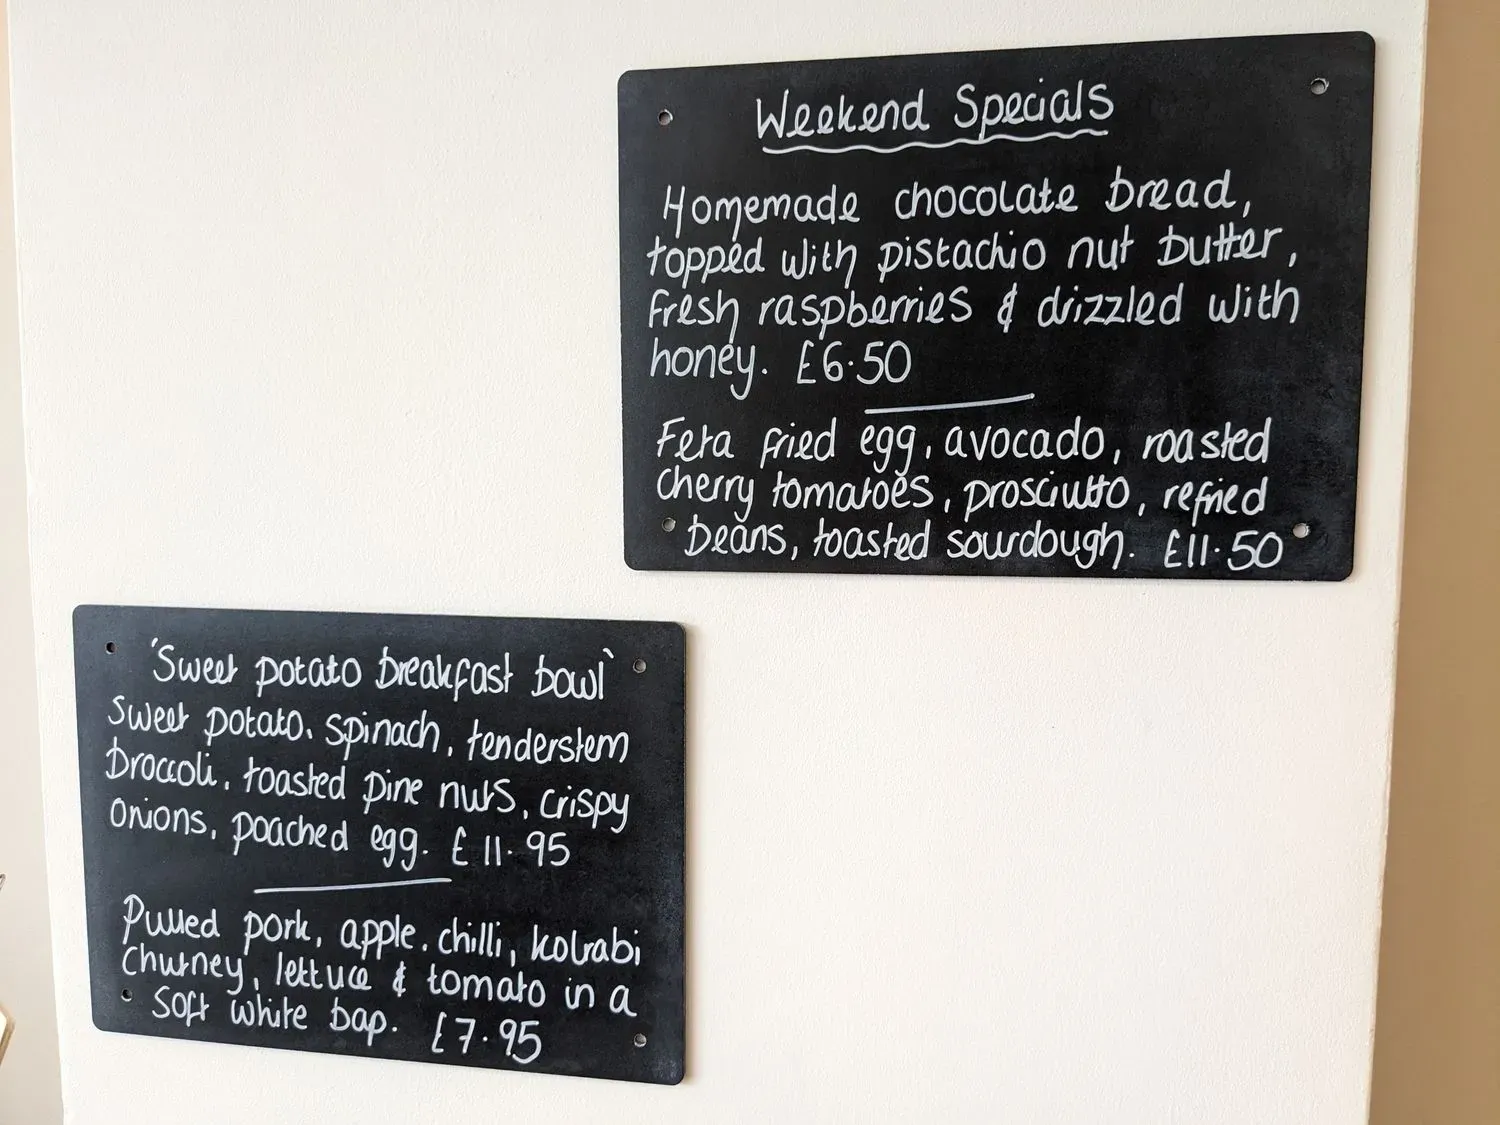 Weekend Specials
Homemade chocolate bread,
topped with pistachio nut butter,
fresh raspberries & drizzled with
honey. £6.50
Feta fried egg, avocado, roasted
cherry tomatoes, prosciutto, refried
beans, toasted sourdough. £11.50
'Sweet potato breakfast bowl'
Sweet potato, spinach, tenderstem
broccoli, toasted pine nuts, crispy
onions, poached egg. £11.95
Pulled pork, apple, chilli, kolrabi
Chutney, lettuce & tomato in a
soft white bap. £7.95